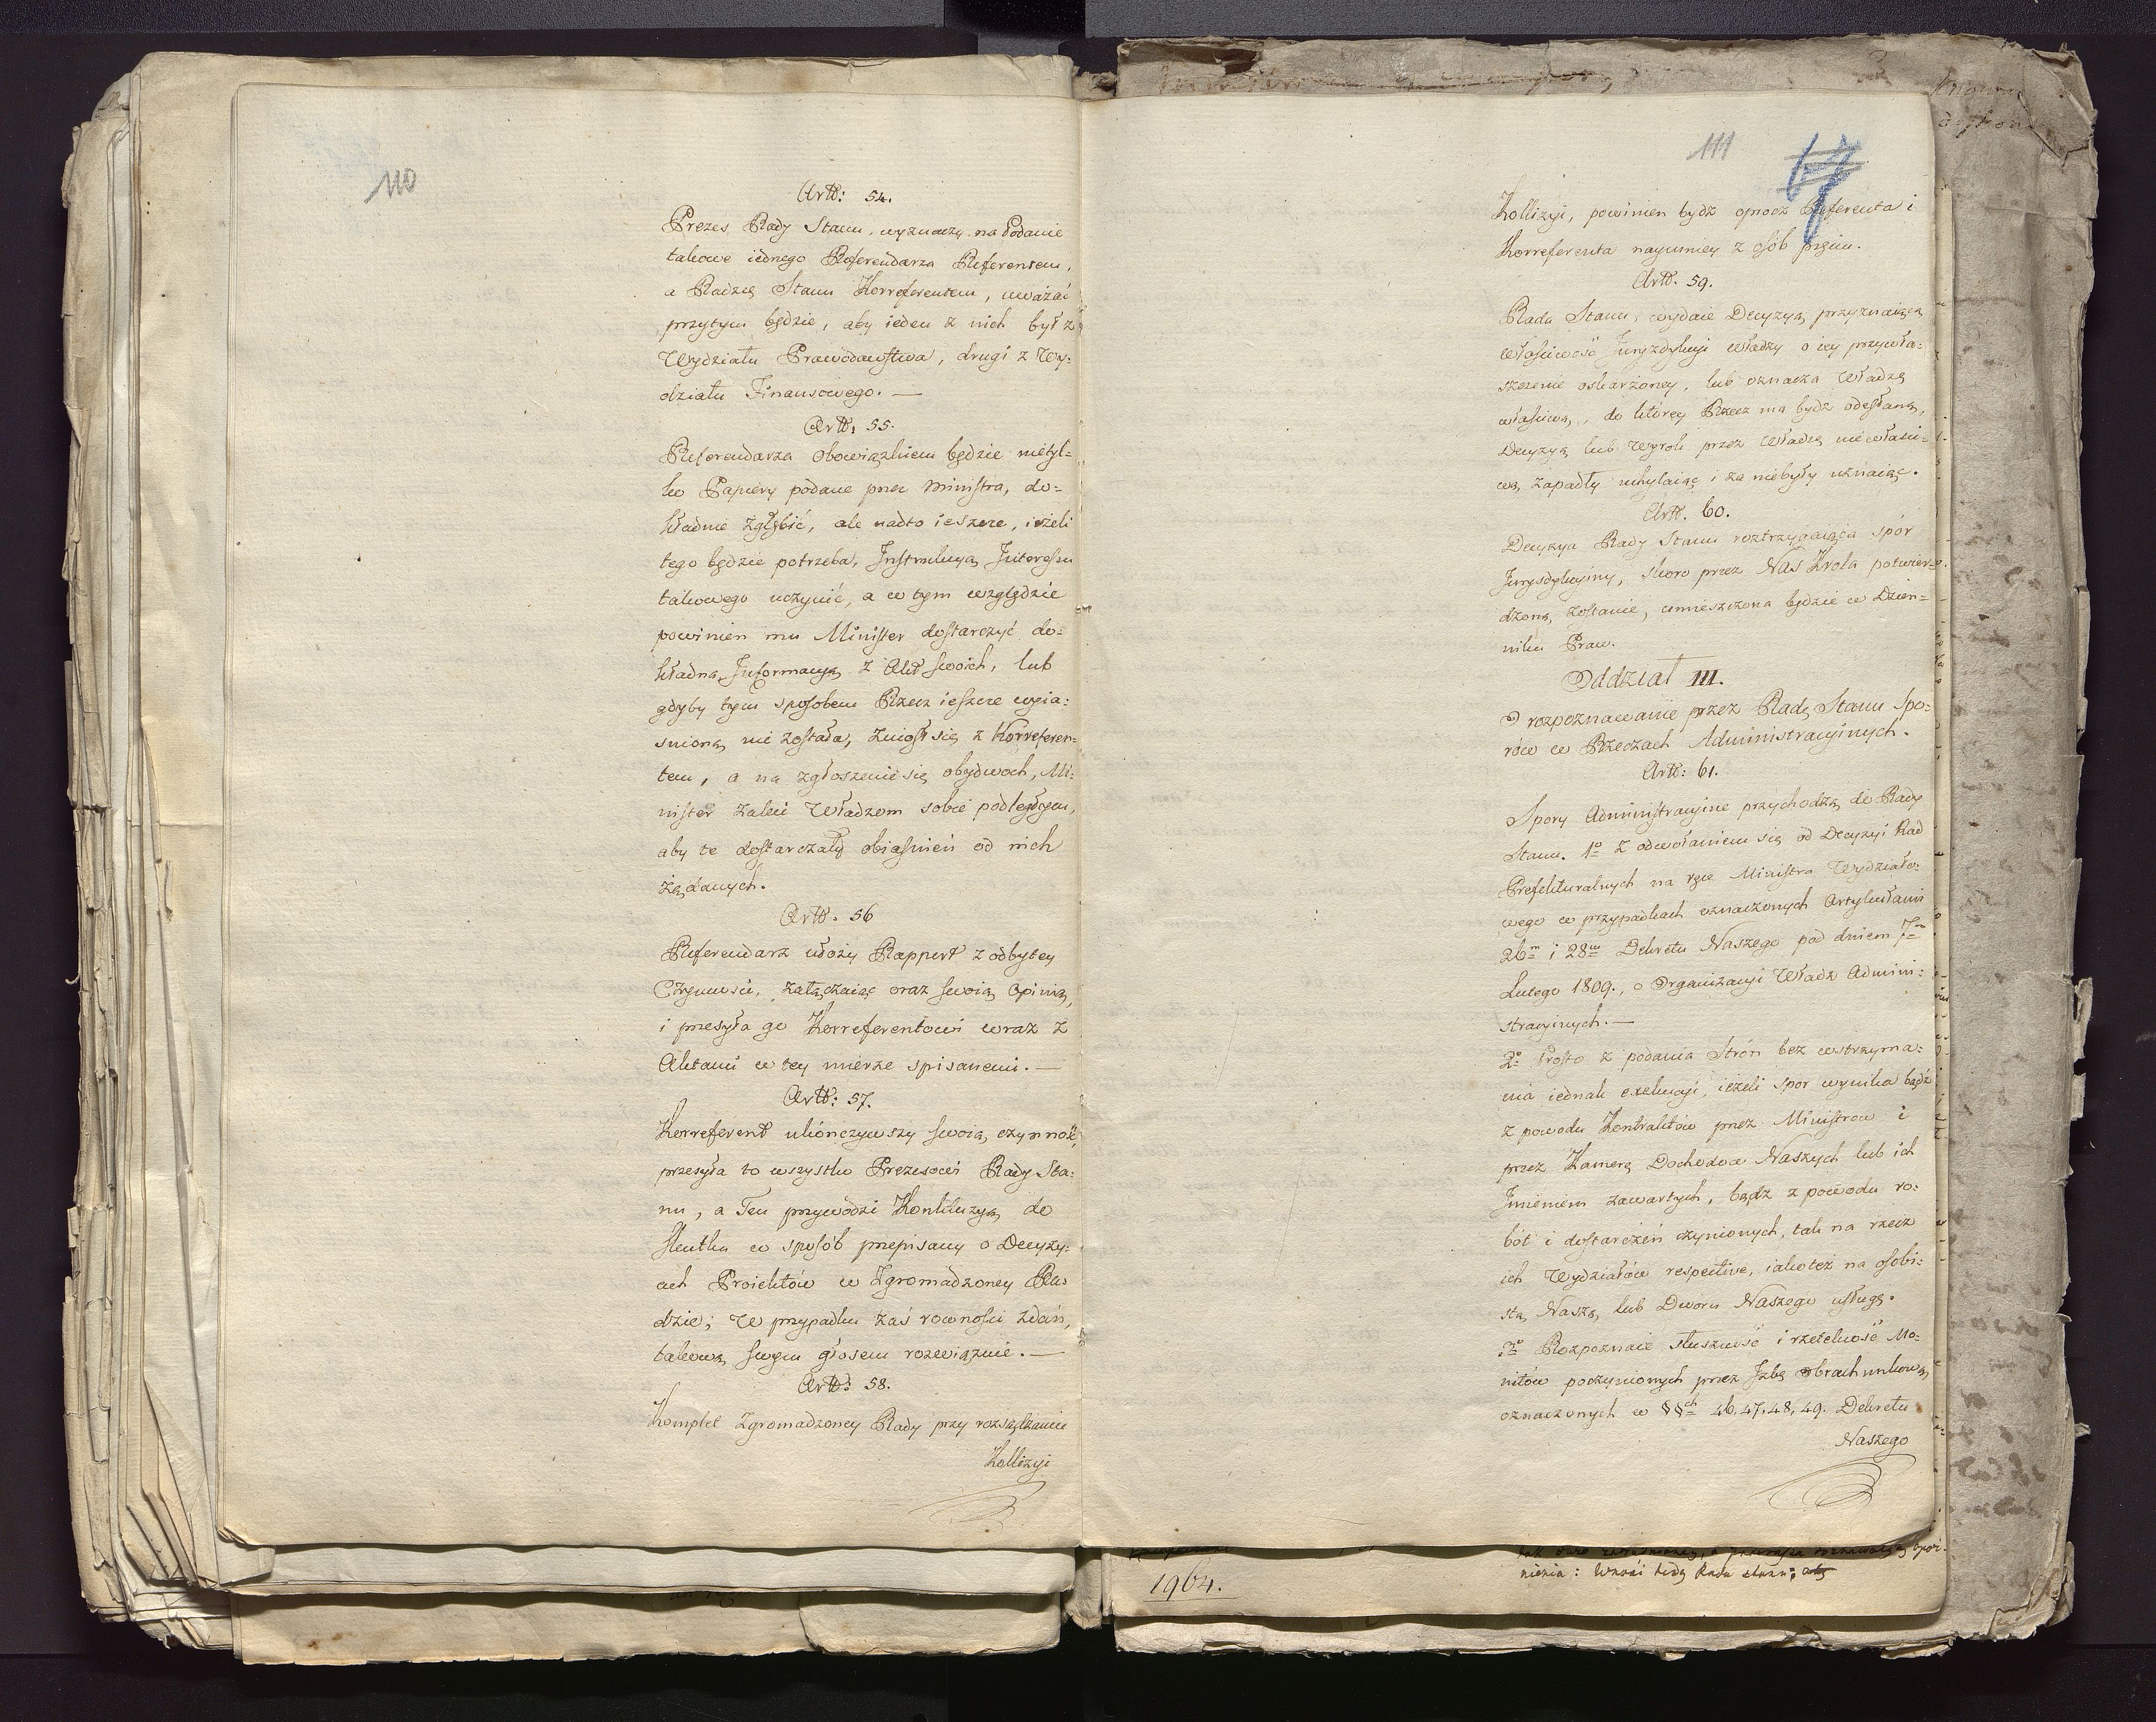 110
Artt: 54.
Prezes Rady Stanu, wyznaczy na Podanie
takowe iednego Referendarza Referentem,
a Radzcę Stanu Korreferentem, uważać
przytym będzie, aby ieden z nich był z
Wydziału Prawodawstwa, drugi z Wy-
działu Finansowego. —
Artt. 55.
Referendarza obowiązkiem będzie nietyl-
ko Papiery podane przez Ministra, do-
kładnie zgłębić, ale nadto ieszcze, ieżeli
tego będzie potrzeba, Instrukcyą Interessu
takowego uczynić, a w tym względzie
powinien mu Minister dostarczyć do-
kładną Informacyą z Akt swoich, lub
gdyby tym sposobem Rzecz ieszcze wyia-
śnioną nie została, zniosł się z Korreferen-
tem, a na zgłoszenie się obydwoch, Mi-
nister zaleci Władzom sobie podległym,
aby te dostarczały obiaśnień od nich
żądanych.
Artt. 56
Referendarz ułoży Rapport z odbytey
Czynności, załączaiąc oraz swoią Opinią,
i przesyła go Korreferentowi wraz z
Aktami w tey mierze spisanemi. —
Artt: 57.
Korreferent ukończywszy swoią czynność,
przesyła to wszystko Prezesowi Rady Sta-
nu, a Ten przywodzi Konkluzyą do
skutku w sposób przepisany o Decyzy-
ach Proiektów w Zgromadzoney Ra-
dzie; W przypadku zaś rowności zdań,
takową swym głosem rozwiąznie. —
Artt: 58.
Komplet Zgromadzoney Rady przy rozsądzaniu
Kollizyi
111
17
Kollizyi, powinien bydz oprocz Referenta i
Korreferenta naymniey z osób pięciu.
Artt. 59.
Rada Stanu, wydaie Decyzyą przyznaiącą
właściwość Juryzdykcyi władzy o iey przywła-
szczenie oskarżoney, lub oznacza Władzę
właściwą, do którey Rzecz ma bydz odesłaną,
Decyzyą lub Wyrok przez Władzę niewłaści-
wą zapadły uchylaiąc i za niebyły uznaiąc.
Artt. 60.
Decyzya Rady Stanu roztrzygaiąca spór
Jurysdykcyiny, skoro przez Nas Krola potwier-
dzoną zostanie, umieszczona będzie w Dzien-
niku Praw.
Oddział III.
O rozpoznawanie przez Radę Stanu Spo-
rów w Rzeczach Administracyinych.
Artt: 61.
Spory Administracyine przychodzą do Rady
Stanu. 1o Z odwołaniem się od Decyzyi Rad
Prefekturalnych na ręce Ministra Wydziało-
wego w przypadkach oznaczonych Artykułami
26m i 28m Dekretu Naszego pod dniem 7m
Lutego 1809., o Organizacyi Władz Admini-
stracyinych. —
2o Prosto z podania Strón bez wstrzyma-
nia iednak exekucyi, ieżeli spor wynika bądź
z powodu Kontraktów przez Ministrow i
przez Kamerę Dochodow Naszych lub ich
Imieniem zawartych, bądz z powodu ro-
bót i dostarczeń czynionych, tak na rzecz
ich Wydziałów respective, iakoteż na osobi-
stą Naszą lub Dworu Naszego usługę.
3o Rozpoznaie słuszność i rzetelność Mo-
nitów poczynionych przez Izbę obrachunkową
oznaczonych w §§ch 46, 47, 48, 49. Dekretu
Naszego
1964.
nienia: Wnosi tedy Rada stanu;